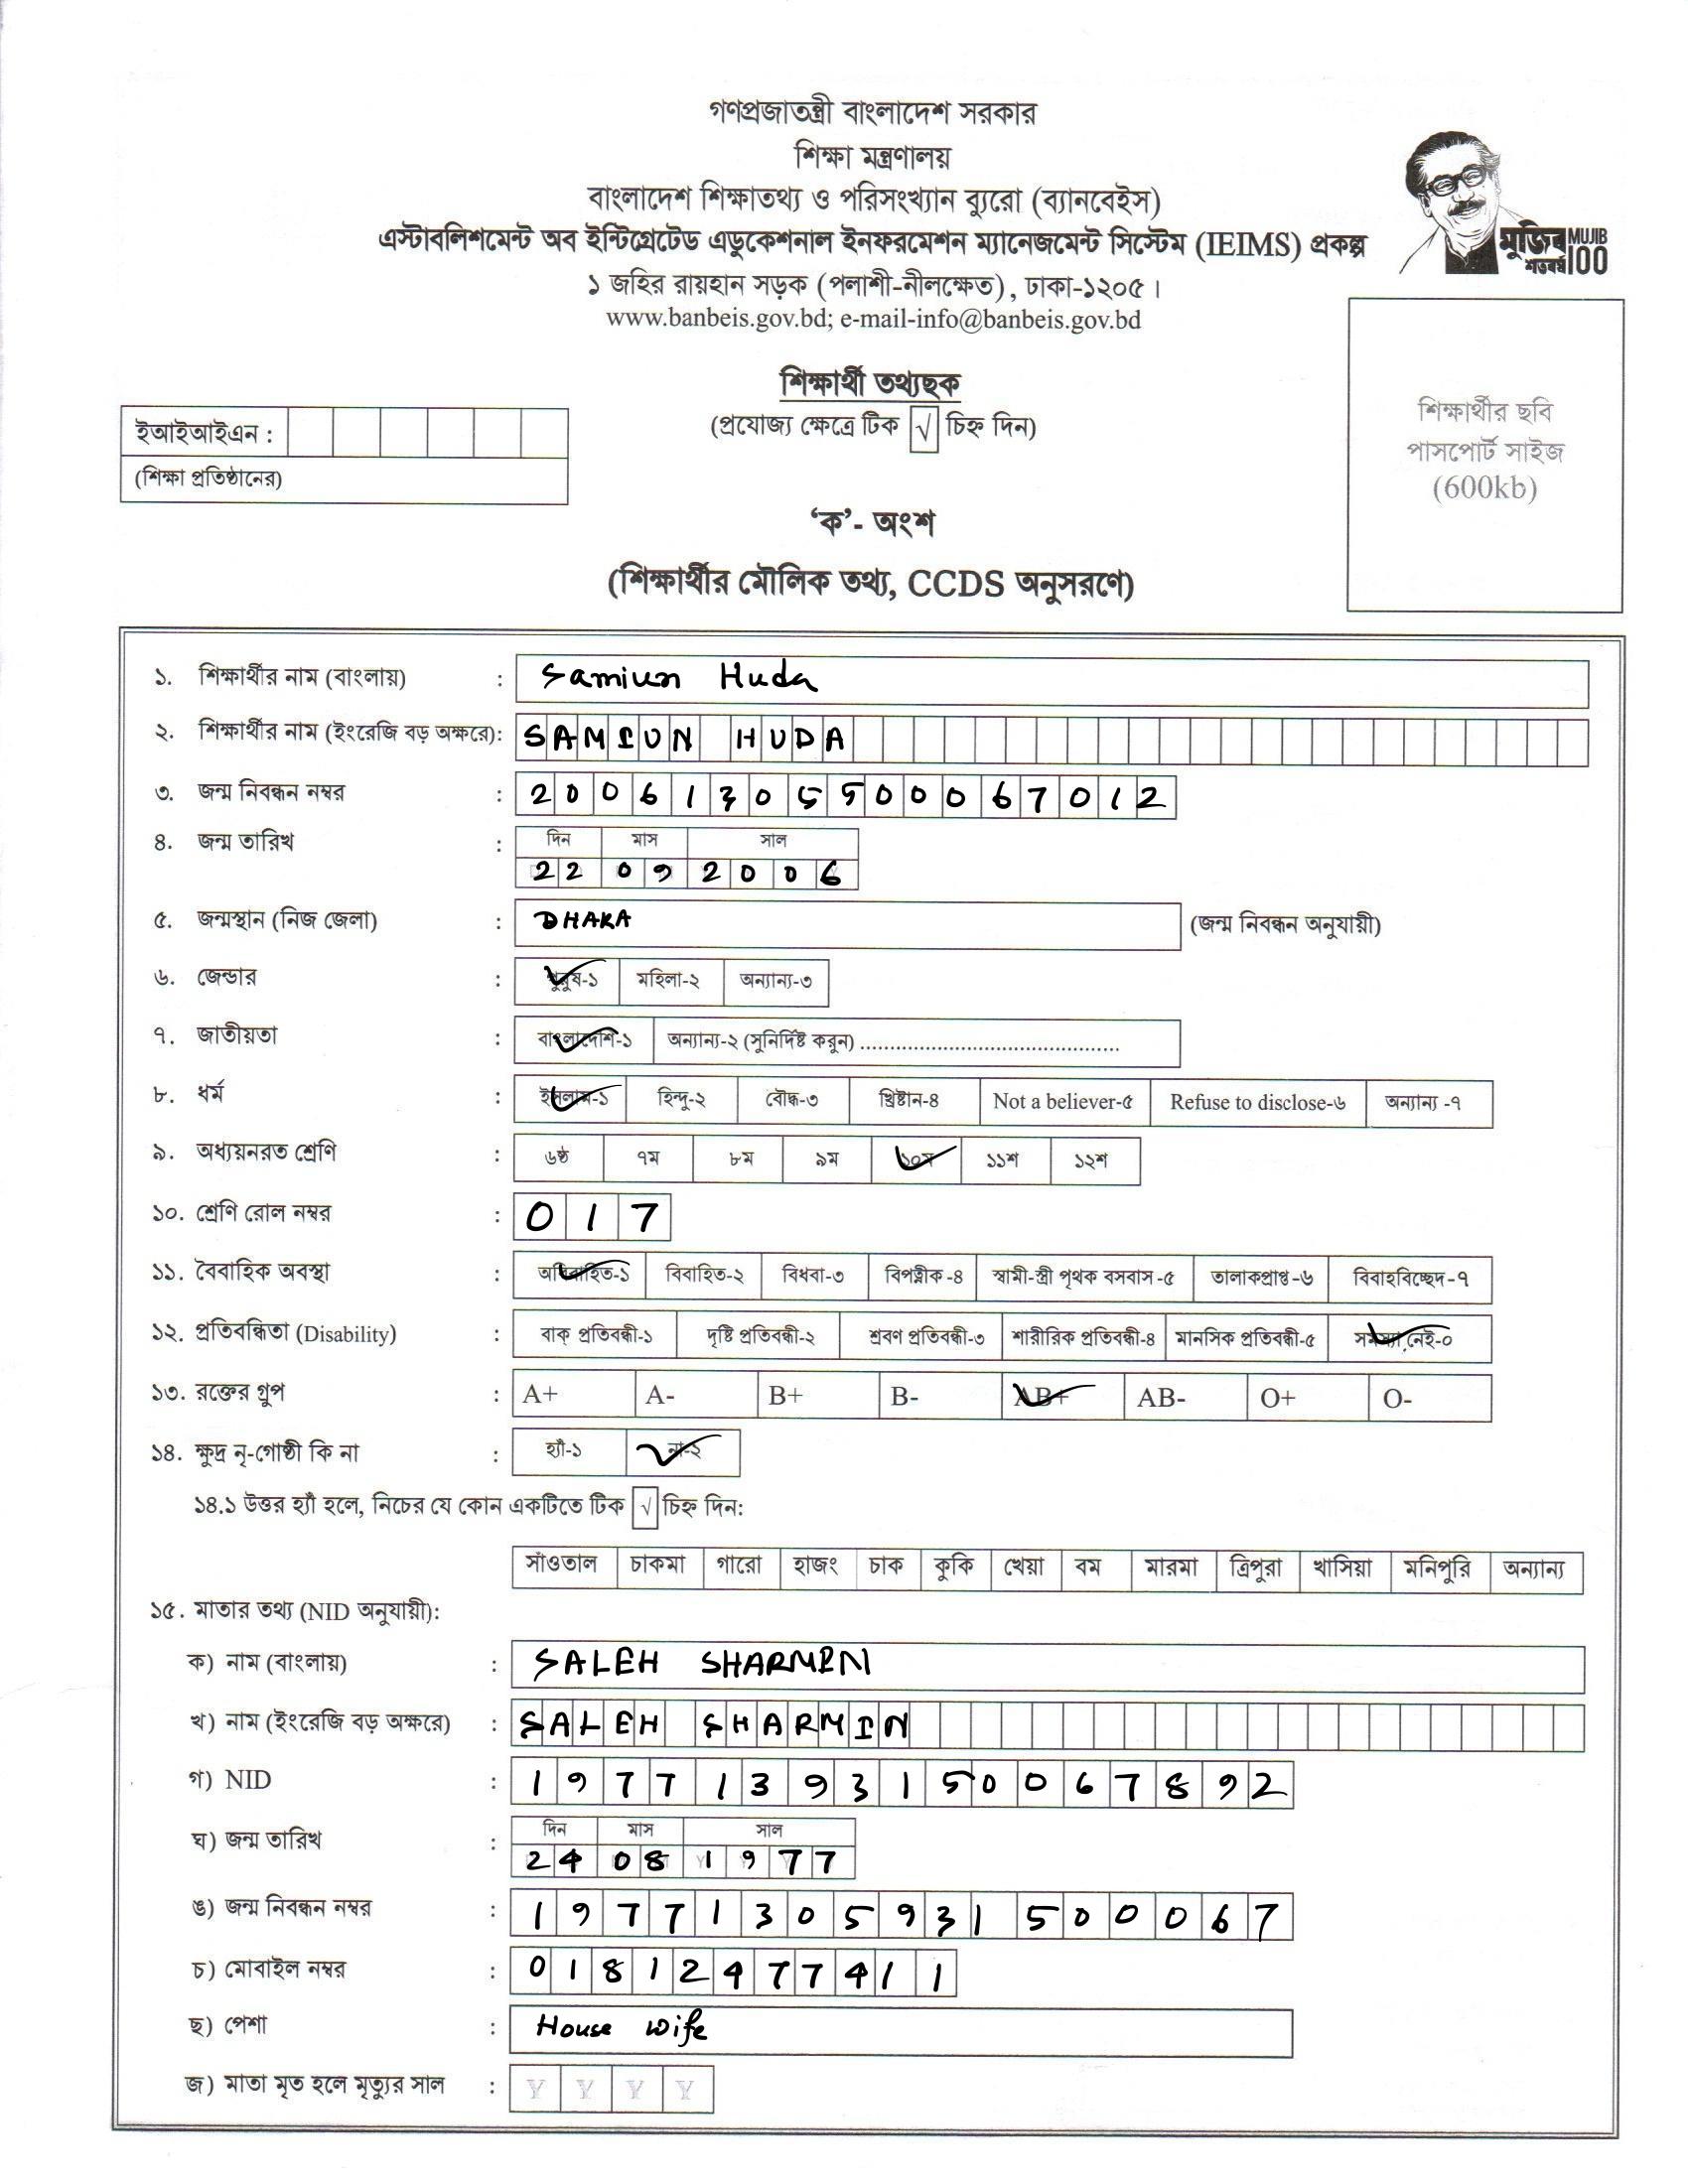 গণপ্রজাতন্ত্রী বাংলাদেশ সরকার
শিক্ষা মন্ত্রণালয়
বাংলাদেশ শিক্ষাতথ্য ও পরিসংখ্যান ব্যুরো (ব্যানবেইস)
এস্টাবলিশমেন্ট অব ইন্টিগ্রেটেড এডুকেশনাল ইনফরমেশন ম্যানেজমেন্ট সিস্টেম (IEIMS) প্রকল্প
মুজিব MUJIB
শতবর্ষ 100
১ জহির রায়হান সড়ক (পলাশী-নীলক্ষেত), ঢাকা-১২০৫।
www.banbeis.gov.bd; e-mail-info@banbeis.gov.bd
শিক্ষার্থী তথ্যছক
(প্রযোজ্য ক্ষেত্রে টিক √ চিহ্ন দিন)
ইআইআইএন :
(শিক্ষা প্রতিষ্ঠানের)
শিক্ষার্থীর ছবি
পাসপোর্ট সাইজ
(600kb)
‘ক’- অংশ
(শিক্ষার্থীর মৌলিক তথ্য, CCDS অনুসরণে)
১. শিক্ষার্থীর নাম (বাংলায়) : Samiun Huda
২. শিক্ষার্থীর নাম (ইংরেজি বড় অক্ষরে): SAMIUN HUDA
৩. জন্ম নিবন্ধন নম্বর : 20061305500067012
৪. জন্ম তারিখ : দিন মাস সাল
22 09 2006
৫. জন্মস্থান (নিজ জেলা) : DHAKA (জন্ম নিবন্ধন অনুযায়ী)
৬. জেন্ডার : পুরুষ-১ মহিলা-২ অন্যান্য-৩
৭. জাতীয়তা : বাংলাদেশি-১ অন্যান্য-২ (সুনির্দিষ্ট করুন) ............................................
৮. ধর্ম : ইসলাম-১ হিন্দু-২ বৌদ্ধ-৩ খ্রিষ্টান-৪ Not a believer-৫ Refuse to disclose-৬ অন্যান্য -৭
৯. অধ্যয়নরত শ্রেণি : ৬ষ্ঠ ৭ম ৮ম ৯ম ১০ম ১১শ ১২শ
১০. শ্রেণি রোল নম্বর : 017
১১. বৈবাহিক অবস্থা : অবিবাহিত-১ বিবাহিত-২ বিধবা-৩ বিপত্নীক -৪ স্বামী-স্ত্রী পৃথক বসবাস -৫ তালাকপ্রাপ্ত -৬ বিবাহবিচ্ছেদ -৭
১২. প্রতিবন্ধিতা (Disability) : বাক্ প্রতিবন্ধী-১ দৃষ্টি প্রতিবন্ধী-২ শ্রবণ প্রতিবন্ধী-৩ শারীরিক প্রতিবন্ধী-৪ মানসিক প্রতিবন্ধী-৫ সমস্যা নেই-০
১৩. রক্তের গ্রুপ : A+ A- B+ B- AB+ AB- O+ O-
১৪. ক্ষুদ্র নৃ-গোষ্ঠী কি না : হ্যাঁ-১ না-২
১৪.১ উত্তর হ্যাঁ হলে, নিচের যে কোন একটিতে টিক √ চিহ্ন দিন:
সাঁওতাল চাকমা গারো হাজং চাক কুকি খেয়া বম মারমা ত্রিপুরা খাসিয়া মনিপুরি অন্যান্য
১৫. মাতার তথ্য (NID অনুযায়ী):
ক) নাম (বাংলায়) : SALEH SHARMIN
খ) নাম (ইংরেজি বড় অক্ষরে) : SALEH SHARMIN
গ) NID : 19771393150067892
ঘ) জন্ম তারিখ : দিন মাস সাল
24 08 1977
ঙ) জন্ম নিবন্ধন নম্বর : 19771305931500067
চ) মোবাইল নম্বর : 01812477411
ছ) পেশা : House wife
জ) মাতা মৃত হলে মৃত্যুর সাল : Y Y Y Y